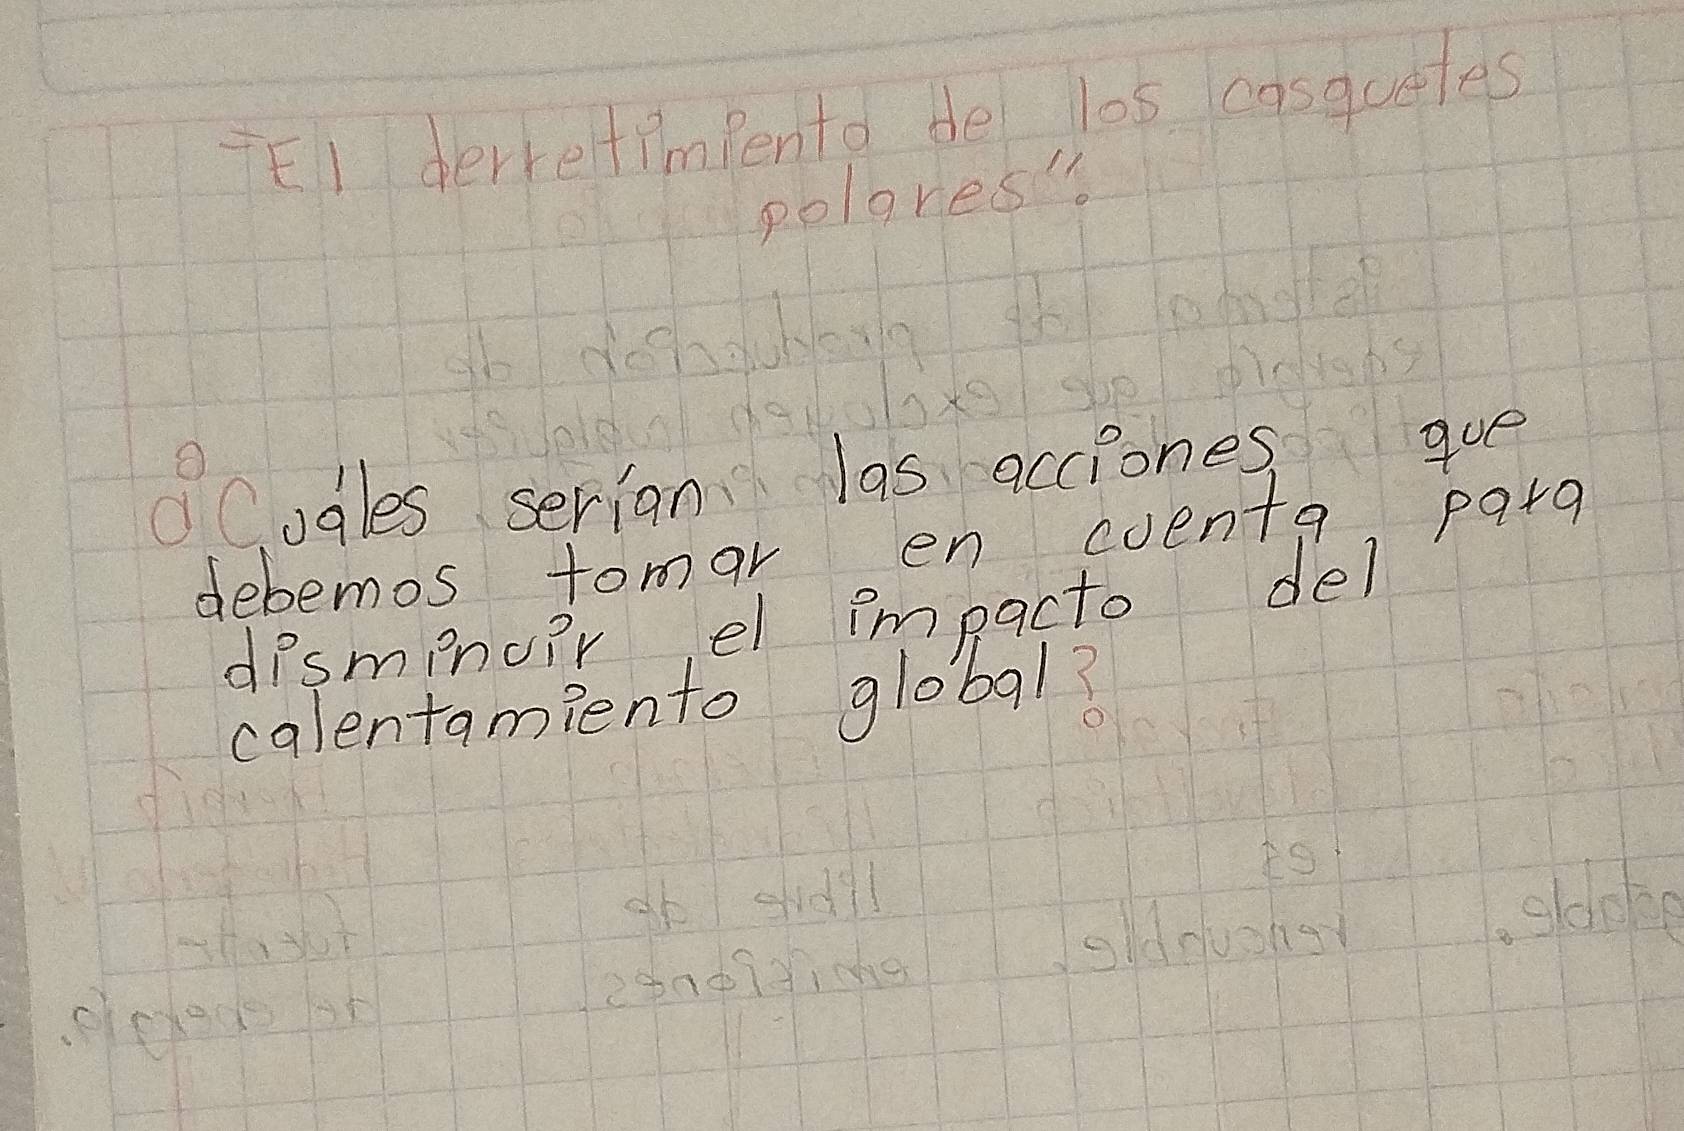 "El derretimiento de los casquetes
polares".
¿Cuáles serían las acciones que
debemos tomar en cuenta, para
disminuir el impacto del
calentamiento global?